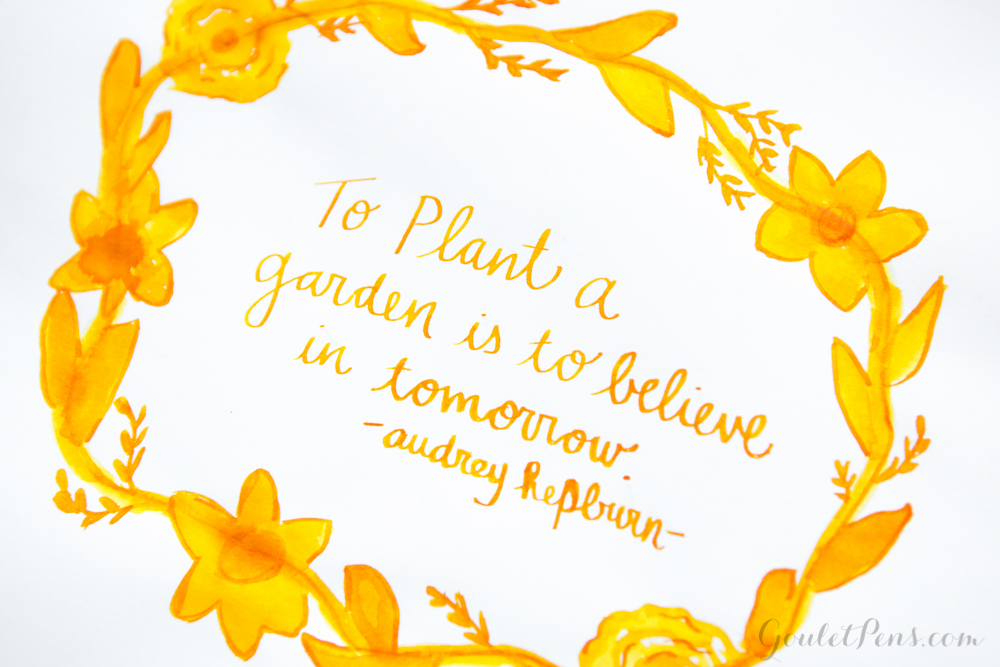 To Plant a
garden is to believe
in tomorrow.
-audrey hepburn-
GouletPens.com